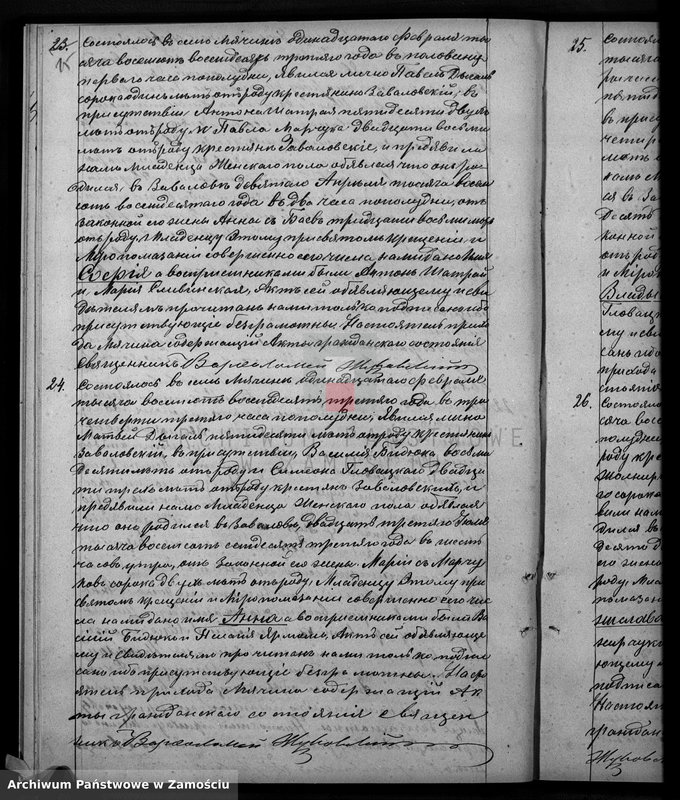 23. Состоялось въ селѣ Мячинѣ одинадцатаго Февраля ты-
сяча восемьсотъ восемьдесятъ третьяго года въ половину
перваго часа пополудни, явился лично Павелъ
сорока однихъ лѣтъ отъ роду крестьянинъ Заваловскій, въ
присутствіи Антона Шатрая пятидесяти двухъ
лѣтъ отъ роду и Павла Марчука двадцати восьми
лѣтъ отъ роду крестьянъ Заваловскихъ, и предъявили
намъ Младенца Женскаго пола объявляя что онъ ро-
дился, въ Заваловѣ девятаго Апрѣля тысяча восемь-
сотъ восемьдесятаго года въ два часа пополудни, отъ
законной его жены Анны съ Баевъ тридцати восьми лѣтъ
отъ роду. Младенцу Этому при святомъ крещеніи и
Муропомазаніи совершенно сего числа нами дано имя
Софія а воспріемниками были Антонъ Шатрай
и Марія Сливинская, Актъ сей объявляющему и сви-
дѣтелямъ прочитанъ нами только подписанъ ибо
присутствующіе безграмотны. Настоятель прихо-
да Мячина содержащій Акты гражданскаго состоянія
Священникъ Варѳоломей
24. Состоялось въ селѣ Мячинѣ одинадцатаго Февраля
тысяча восемьсотъ восемьдесятъ третьяго года въ три
четверти третьяго часа пополудни, явился лично
Матвей пятидесяти лѣтъ отъ роду крестьянинъ
Заваловскій, въ присутствіи, Василія Бидюка восьми
десяти лѣтъ отъ роду и Симеона Гловацкаго двадца-
ти трехъ лѣтъ отъ роду крестьянъ Заваловскихъ, и
предъявили намъ Младенца Женскаго пола объявляя
что онъ родился въ Заваловѣ, двадцать третьяго Іюля
тысяча восемьсотъ семьдесятъ третьяго года въ шесть
часовъ утра, отъ Законной его жены Маріи съ Марчу-
ковъ сорока двухъ лѣтъ отъ роду, Младенцу Этому при
святомъ крещеніи и Муропомазаніи совершенно сего чи-
сла нами дано имя Анна а воспріемниками были Ва-
силій Бидюкъ и Пелагія Ярмашъ, Актъ сей объявляюще-
му и свидѣтелямъ прочитанъ нами только подпи-
санъ ибо присутствующіе безграмотны. Насто-
ятель прихода Мячина содержащій Ак-
ты гражданскаго состоянія священ-
никъ Варѳоломей
25. Состоял
тысяча
въ прису
Десять
конной
отъ род
и Муро
Влады
Гловац
му и сви
прихода
26. Состоялось
сяча вос
пополудни
роду кре
сорока
вили намъ
дился въ
Десято
его жена
роду, Мла
помазан
ющему и
подписа
Настоя
граждан
Archiwum Państwowe w Zamościu